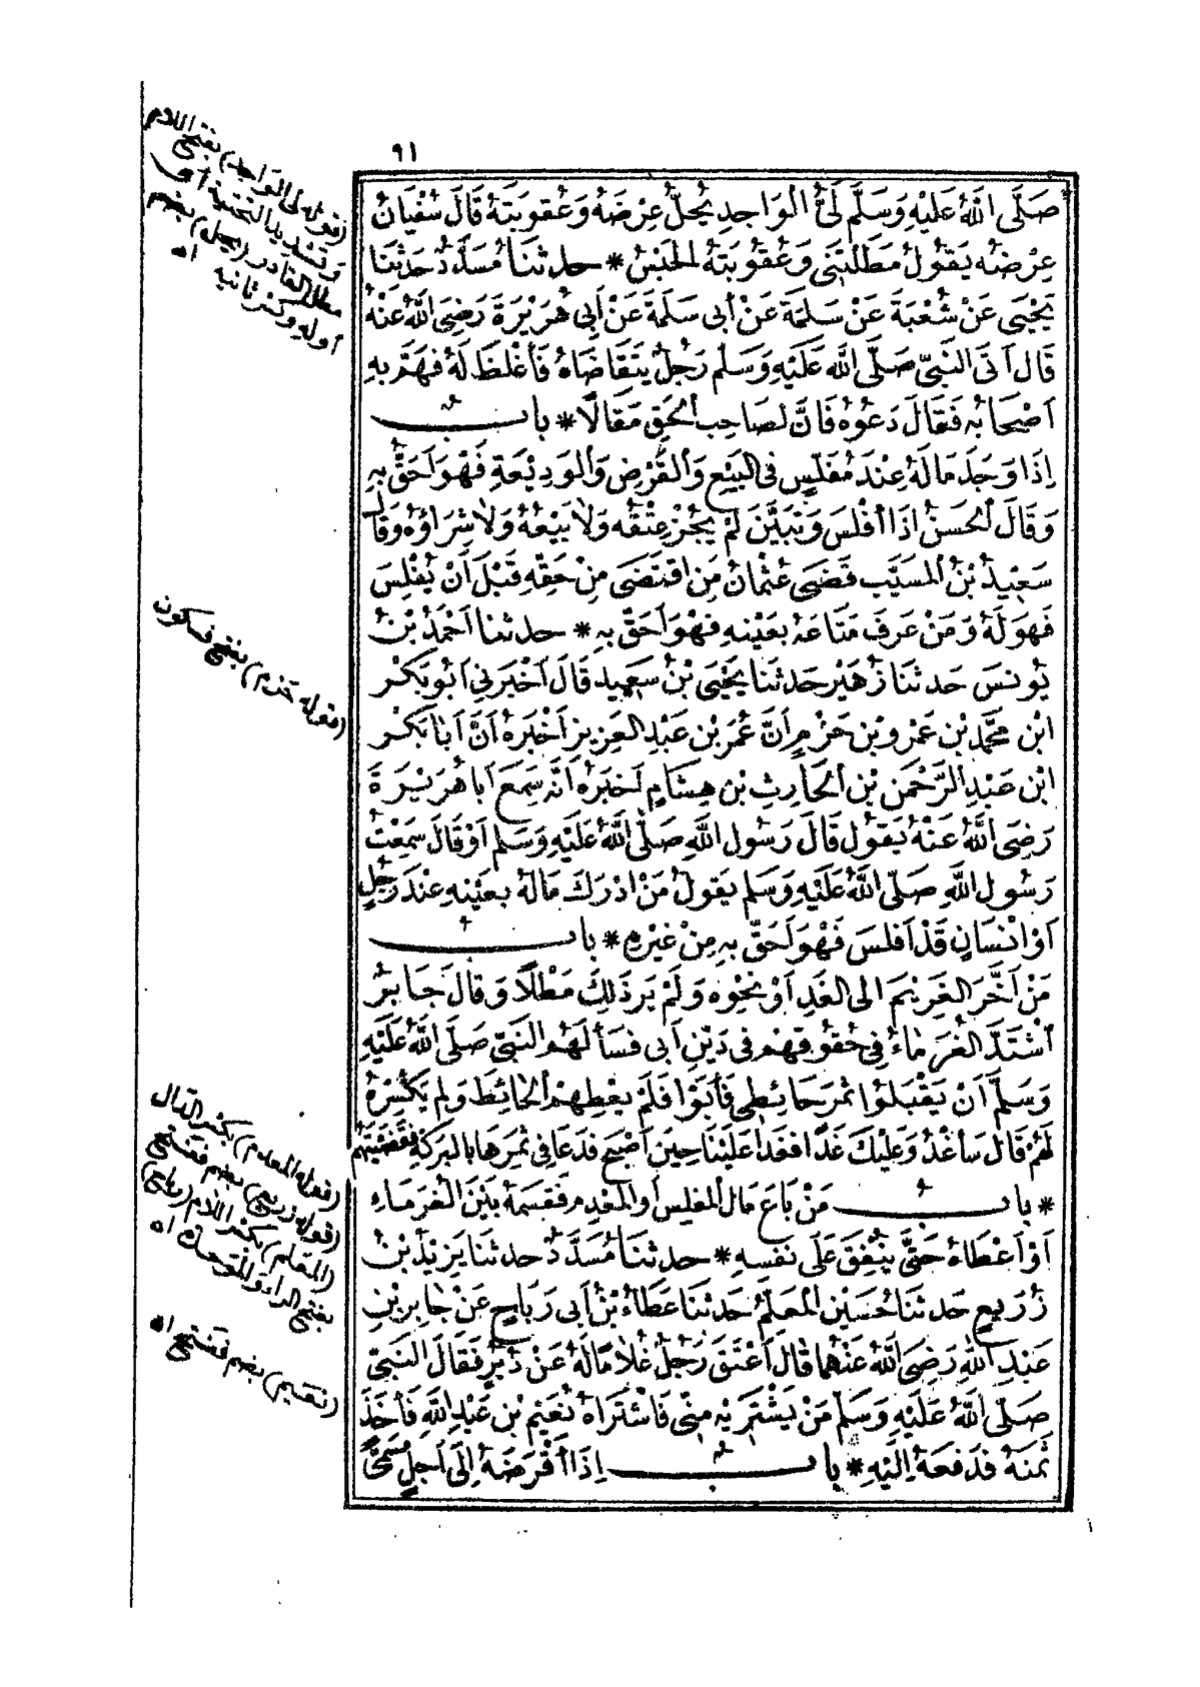 ٩١
صَلَّى اللَّهُ عَلَيْهِ وَسَلَّمَ لَىُّ الْوَاجِدِ يُحِلُّ عِرْضَهُ وَعُقُوبَتَهُ قَالَ سُفْيَانُ
عِرْضُهُ يَقُولُ مَطَلْتَنِى وَعُقُوبَتُهُ الْحَبْسُ * حدثنا مُسَدَّدٌ حَدَثَنَا
يَحْيَى عَنْ شُعْبَةَ عَنْ سَلَمَةَ عَنْ أَبِى سَلَمَةَ عَنْ أَبِى هُرَيْرَةَ رَضِىَ اللَّهُ عَنْهُ
قَالَ أَتَى النَّبِىَّ صَلَّى اللَّه عَلَيْهِ وَسَلَّمَ رَجُلٌ يَتَقَاضَاهُ فَأَغْلَظَ لَهُ فَهَمَّ بِهِ
أَصْحَابُهُ فَقَالَ دَعُوهُ فَانَّ لِصَاحِبِ الْحَقِّ مَقَالًا * باب
إِذَا وَجَدَ مَالَهُ عِنْدَ مُفْلِسٍ فِى الْبَيْعِ وَالْقَرْضِ وَالْوَدِيْعَةِ فَهْوَ أَحَقُّ بِهِ
وَقَالَ الْحَسَنُ اذَا أَفْلَسَ وَتَبَيَّنَ لَمْ يَجُزْ عِتْقُهُ وَلَا بَيْعُهُ وَلَا شِرَاؤُهُ وَقَالَ
سَعِيْدُ بْنُ الْمُسَيَّبِ قَضَى عُثْمَانُ مَنِ اقْتَضَى مِنْ حَقِّهِ قَبْلَ أَنْ يُفْلِسَ
فَهْوَ لَهُ وَمَنْ عَرَفَ مَتَاعَهُ بِعَيْنِهِ فَهْوَ أَحَقُّ بِهِ * حدثنا أَحْمَدُ بْنُ
يُونُسَ حَدثنا زُهَيْر حَدثَنا يَحْيَى بْنُ سَعِيد قَالَ أَخْبَرَنِى أَبُو بَكْرِ
ابْنِ مُحَمَّدِ بْنِ عَمْرِو بْنِ حَزْمٍ أَنَّ عُمَرَ بْنَ عَبْدِ الْعَزِيزِ أَخْبَرَهُ أَنَّ أَبَا بَكْرِ
ابْنَ عَبْدِ الرَّحْمَنِ بْنِ الْحَارِثِ بْنِ هِشَامٍ أَخْبَرَهُ أنَّه سَمِعَ أَبَا هُرَيْرَةَ
رَضِىَ اللَّهُ عَنْهُ يَقُولُ قَالَ رَسُولُ اللَّهِ صَلَّى اللَّهُ عَلَيْهِ وَسَلَّمَ أَوْ قَالَ سَمِعْتُ
رَسُولَ اللَّهِ صَلَّى اللَّهُ عَلَيْهِ وَسَلَّم يَقُولُ مَنْ ادْرَكَ مَالَهُ بِعَيْنِهِ عِنْدَ رَجُلٍ
أَوْ انْسَانٍ قَدْ أَفْلَسَ فَهْوَ أَحَقُّ بِهِ مِنْ غَيْرِهِ * باب
مَنْ أَخَّرَ الْغَرِيْمَ الى الْغَدِ أَوْ نَحْوِهِ وَلَمْ يَرَ ذَلِكَ مَطْلًا وَقَالَ جَابِرٌ
اشْتَدَّ الْغُرَمَاءُ فِى حُقُوقِهِمْ فِى دَيْنِ أَبِى فَسَأَلَهُمُ النَّبِىُّ صَلَّى اللَّهُ عَلَيْهِ
وَسَلَّمَ أَنْ يَقْبَلُوا ثَمَرَ حَائِطِى فَأَبَوْا فَلَمْ يُعْطِهِمْ الْحَائِطَ وَلَمْ يَكْسِرْهُ
لَهُمْ قَالَ سَأَغْدُو عَلَيْكَ غَدًا فَغَدَا عَلَيْنَا حِيْنَ أَصْبَحَ فَدَعَا فِى ثَمَرِهَا بِالْبَرَكَةِ فَقَضَيْتُهُمْ
* باب مَنْ بَاعَ مَالَ الْمُفْلِسِ أَوِ الْمُعْدِمِ فَقَسَمَهُ بَيْنَ الْغُرَمَاءِ
أَوْ أَعْطَاهُ حَتَّى يُنْفِقَ عَلَى نَفْسِهِ * حدثنا مُسَدَّدٌ حدثنا يَزِيْدُ بْنُ
زُرَيْعٍ حَدثنا حُسَيْن الْمُعَلِّمُ حَدثَنا عَطَاءُ بْنُ أَبِى رَبَاحٍ عَنْ جَابِرِ بْنِ
عَبْدِ اللَّهِ رَضِىَ اللَّهُ عَنْهُمَا قَالَ أَعْتَقَ رَجُلٌ غُلَامًا لَهُ عَنْ دُبُرٍ فَقَالَ النَّبِىُّ
صَلَّى اللَّهُ عَلَيْهِ وَسَلَّمَ مَنْ يَشْتَرِيْهِ مِنِّى فَاشْتَرَاهُ نُعَيْمُ بْنُ عَبْدِ اللَّهِ فَأَخَذَ
ثَمَنَهُ فَدَفَعَهُ إِلَيْهِ * باب إِذَا أَقْرَضَهُ إِلَى أَجَلٍ مُسَمًّى
(قوله لى الواجد) بفتح اللام
وتشديد التحتية أى
مطل القادر (يحل) بضم
أوله وكسر ثانيه اه
(قوله حزم) بفتح فسكون
(قوله المعدم) بكسر الدال
(قوله زريع) بضم ففتح
(المعلم) بكسر اللام (رباح)
بفتح الراء والموحدة اه
(نعيم) بضم ففتح اه